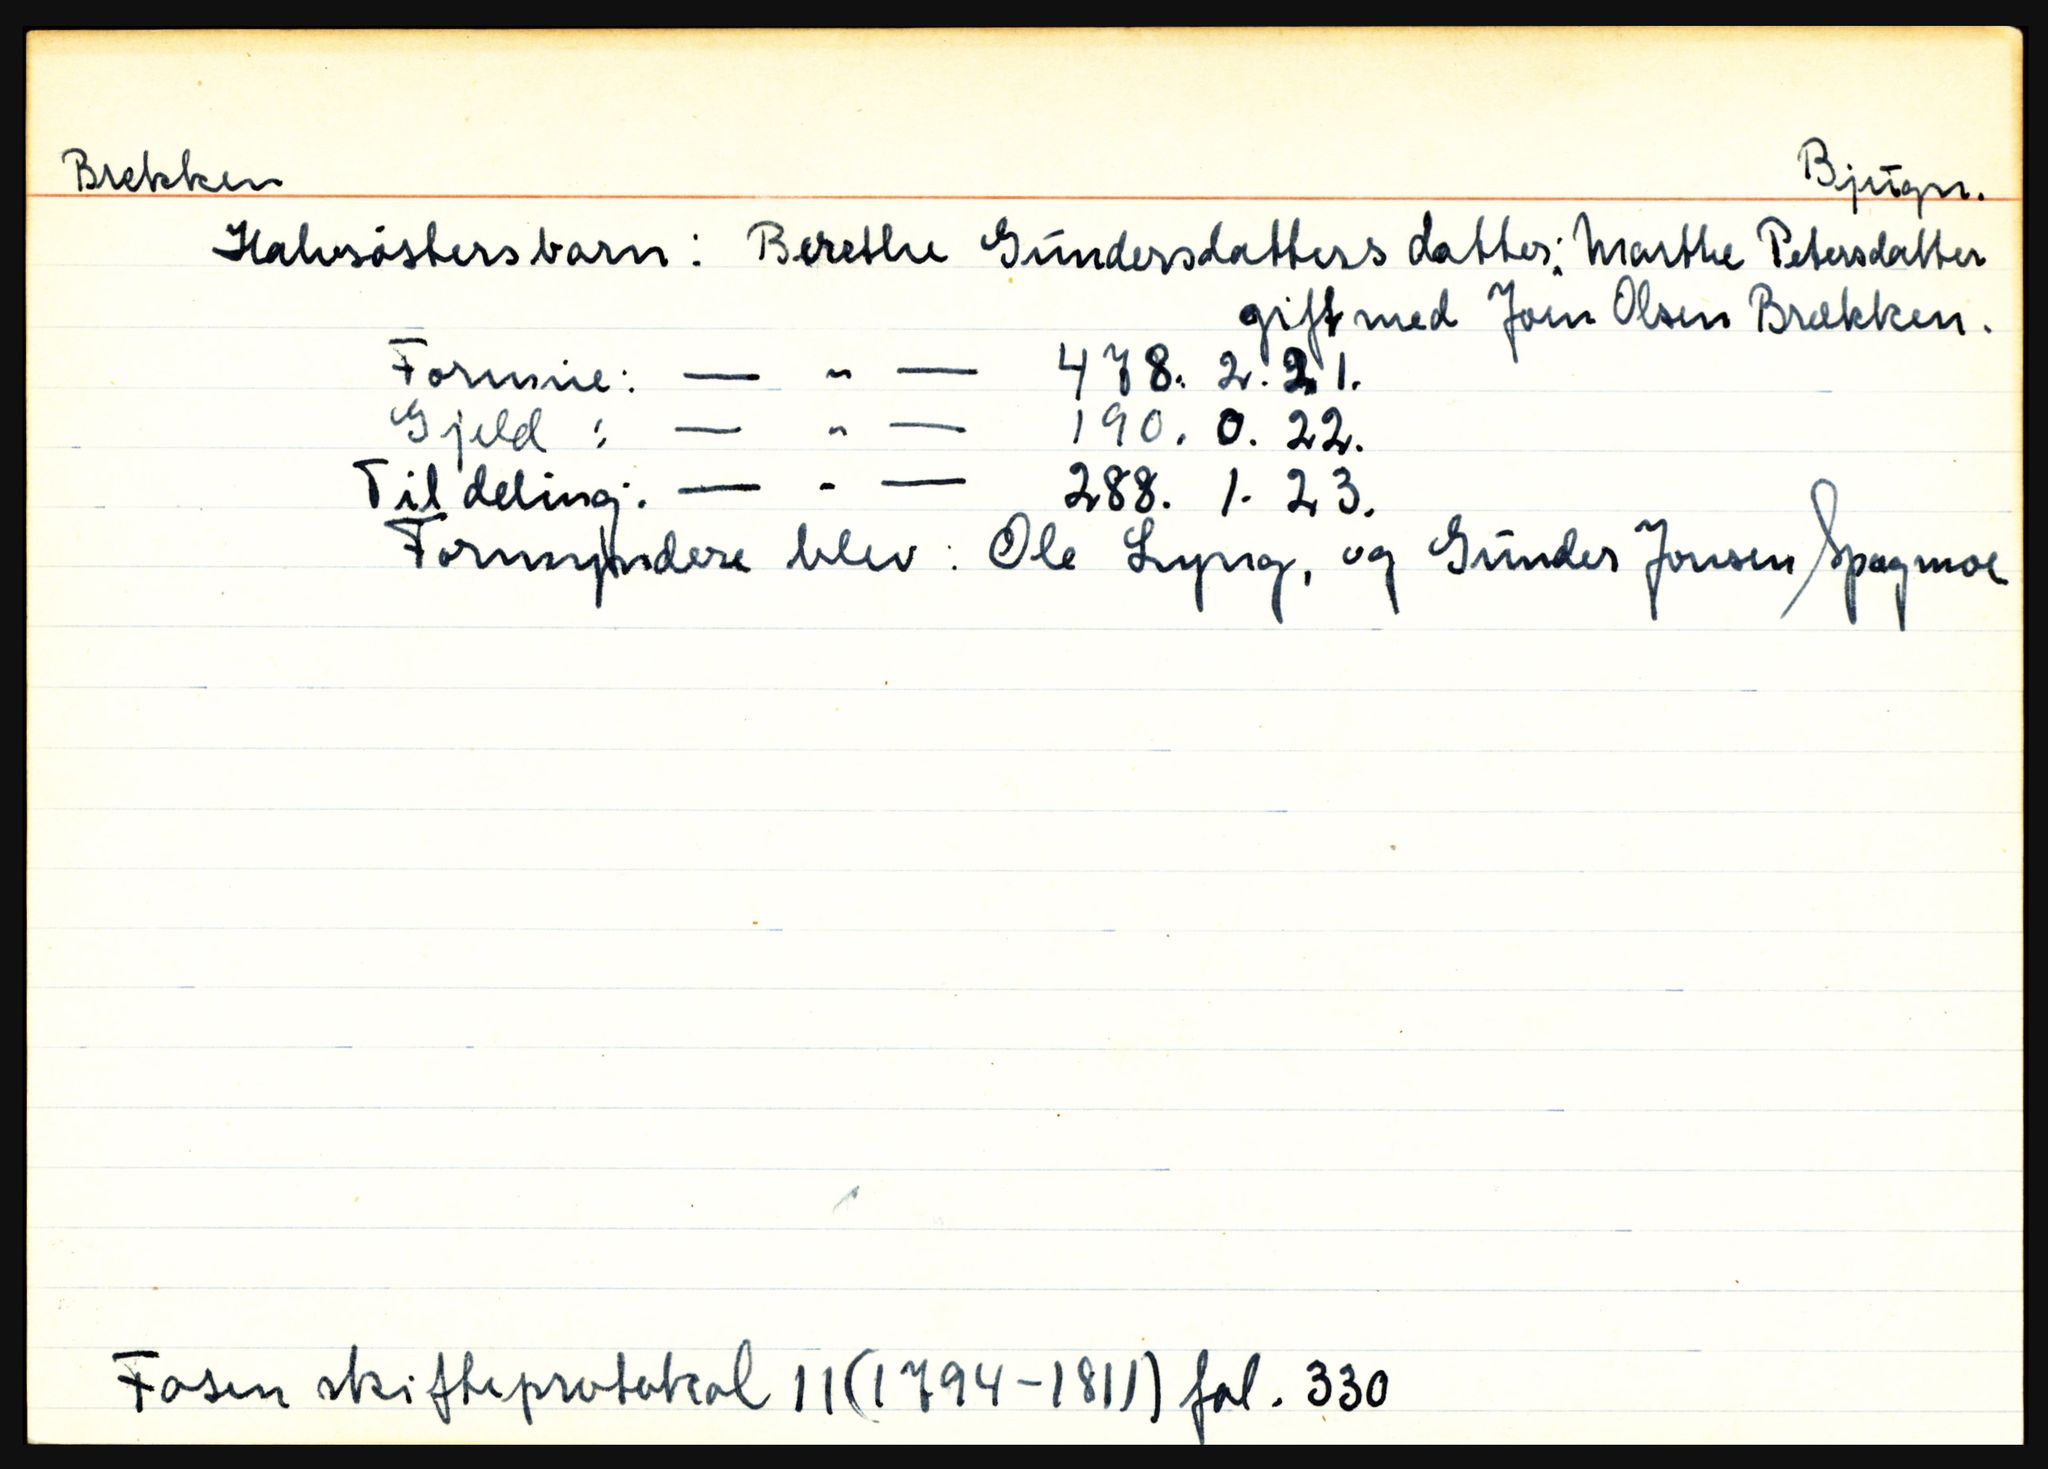 Brekken Bjugn.
Halvsösters barn: Berethe Gundersdatters datter: Marthe Petersdatter
gift med Joen Olsen Brækken.
Formue: — " — 478. 2. 21.
Gjeld : — " — 190. 0. 22.
Til deling: — " — 288. 1. 23.
Formyndere blev: Ole Lyng, og Gunder Jonsen Spagmoe
Fosen skifteprotokol 11 (1794-1811) fol. 330